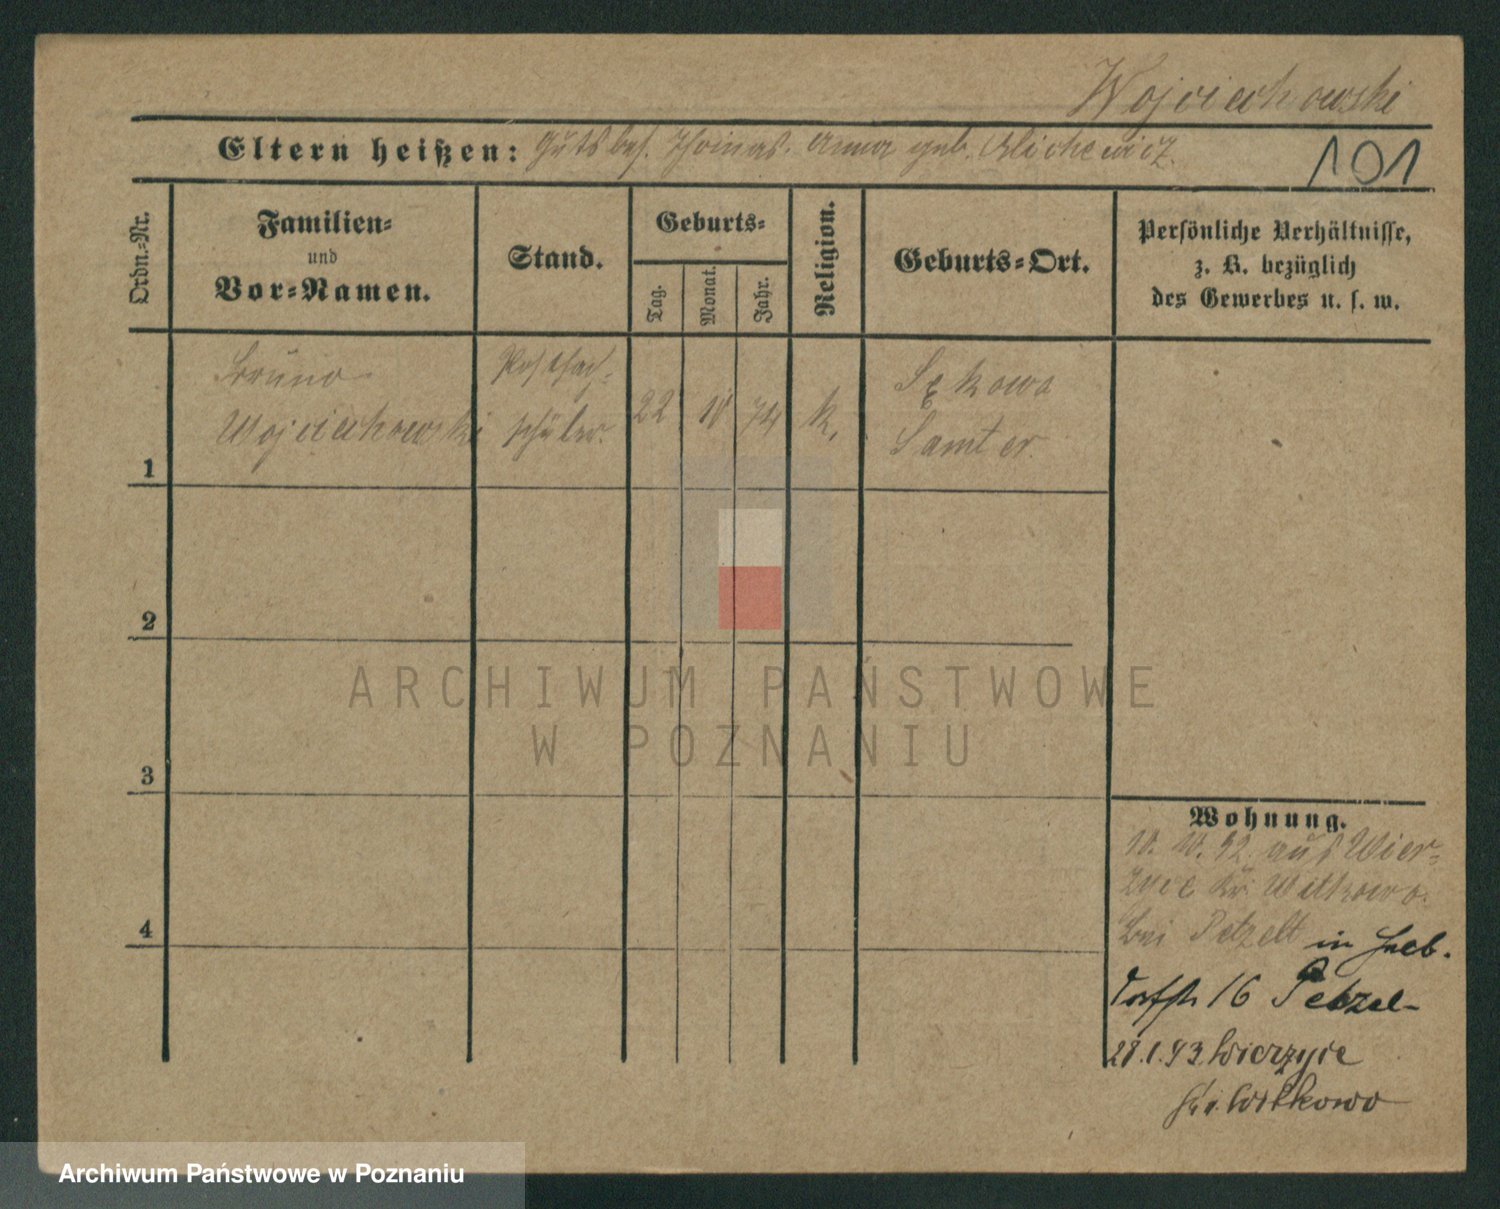 Wojciechowski
Eltern heißen: Gutsbes. Thomas. Anna geb. Klichewicz.
101
Ordn.=Nr.
Familien=
und
Vor=Namen.
Stand.
Geburts=
Tag.
Monat.
Jahr.
Religion.
Geburts=Ort.
Persönliche Verhältnisse,
z. B. bezüglich
des Gewerbes u. s. w.
1
Bruno
Wojciechowski
Postfach=
schüler.
22
10
74
k.
Sękowo
Samter.
2
3
4
Wohnung.
10. 10. 92. auf Wier=
zyce Kr. Witkowo.
bei Petzelt in
16 Petzel
28.1.93 Wierzyce
Kr. Witkowo
ARCHIWUM PAŃSTWOWE
W POZNANIU
Archiwum Państwowe w Poznaniu